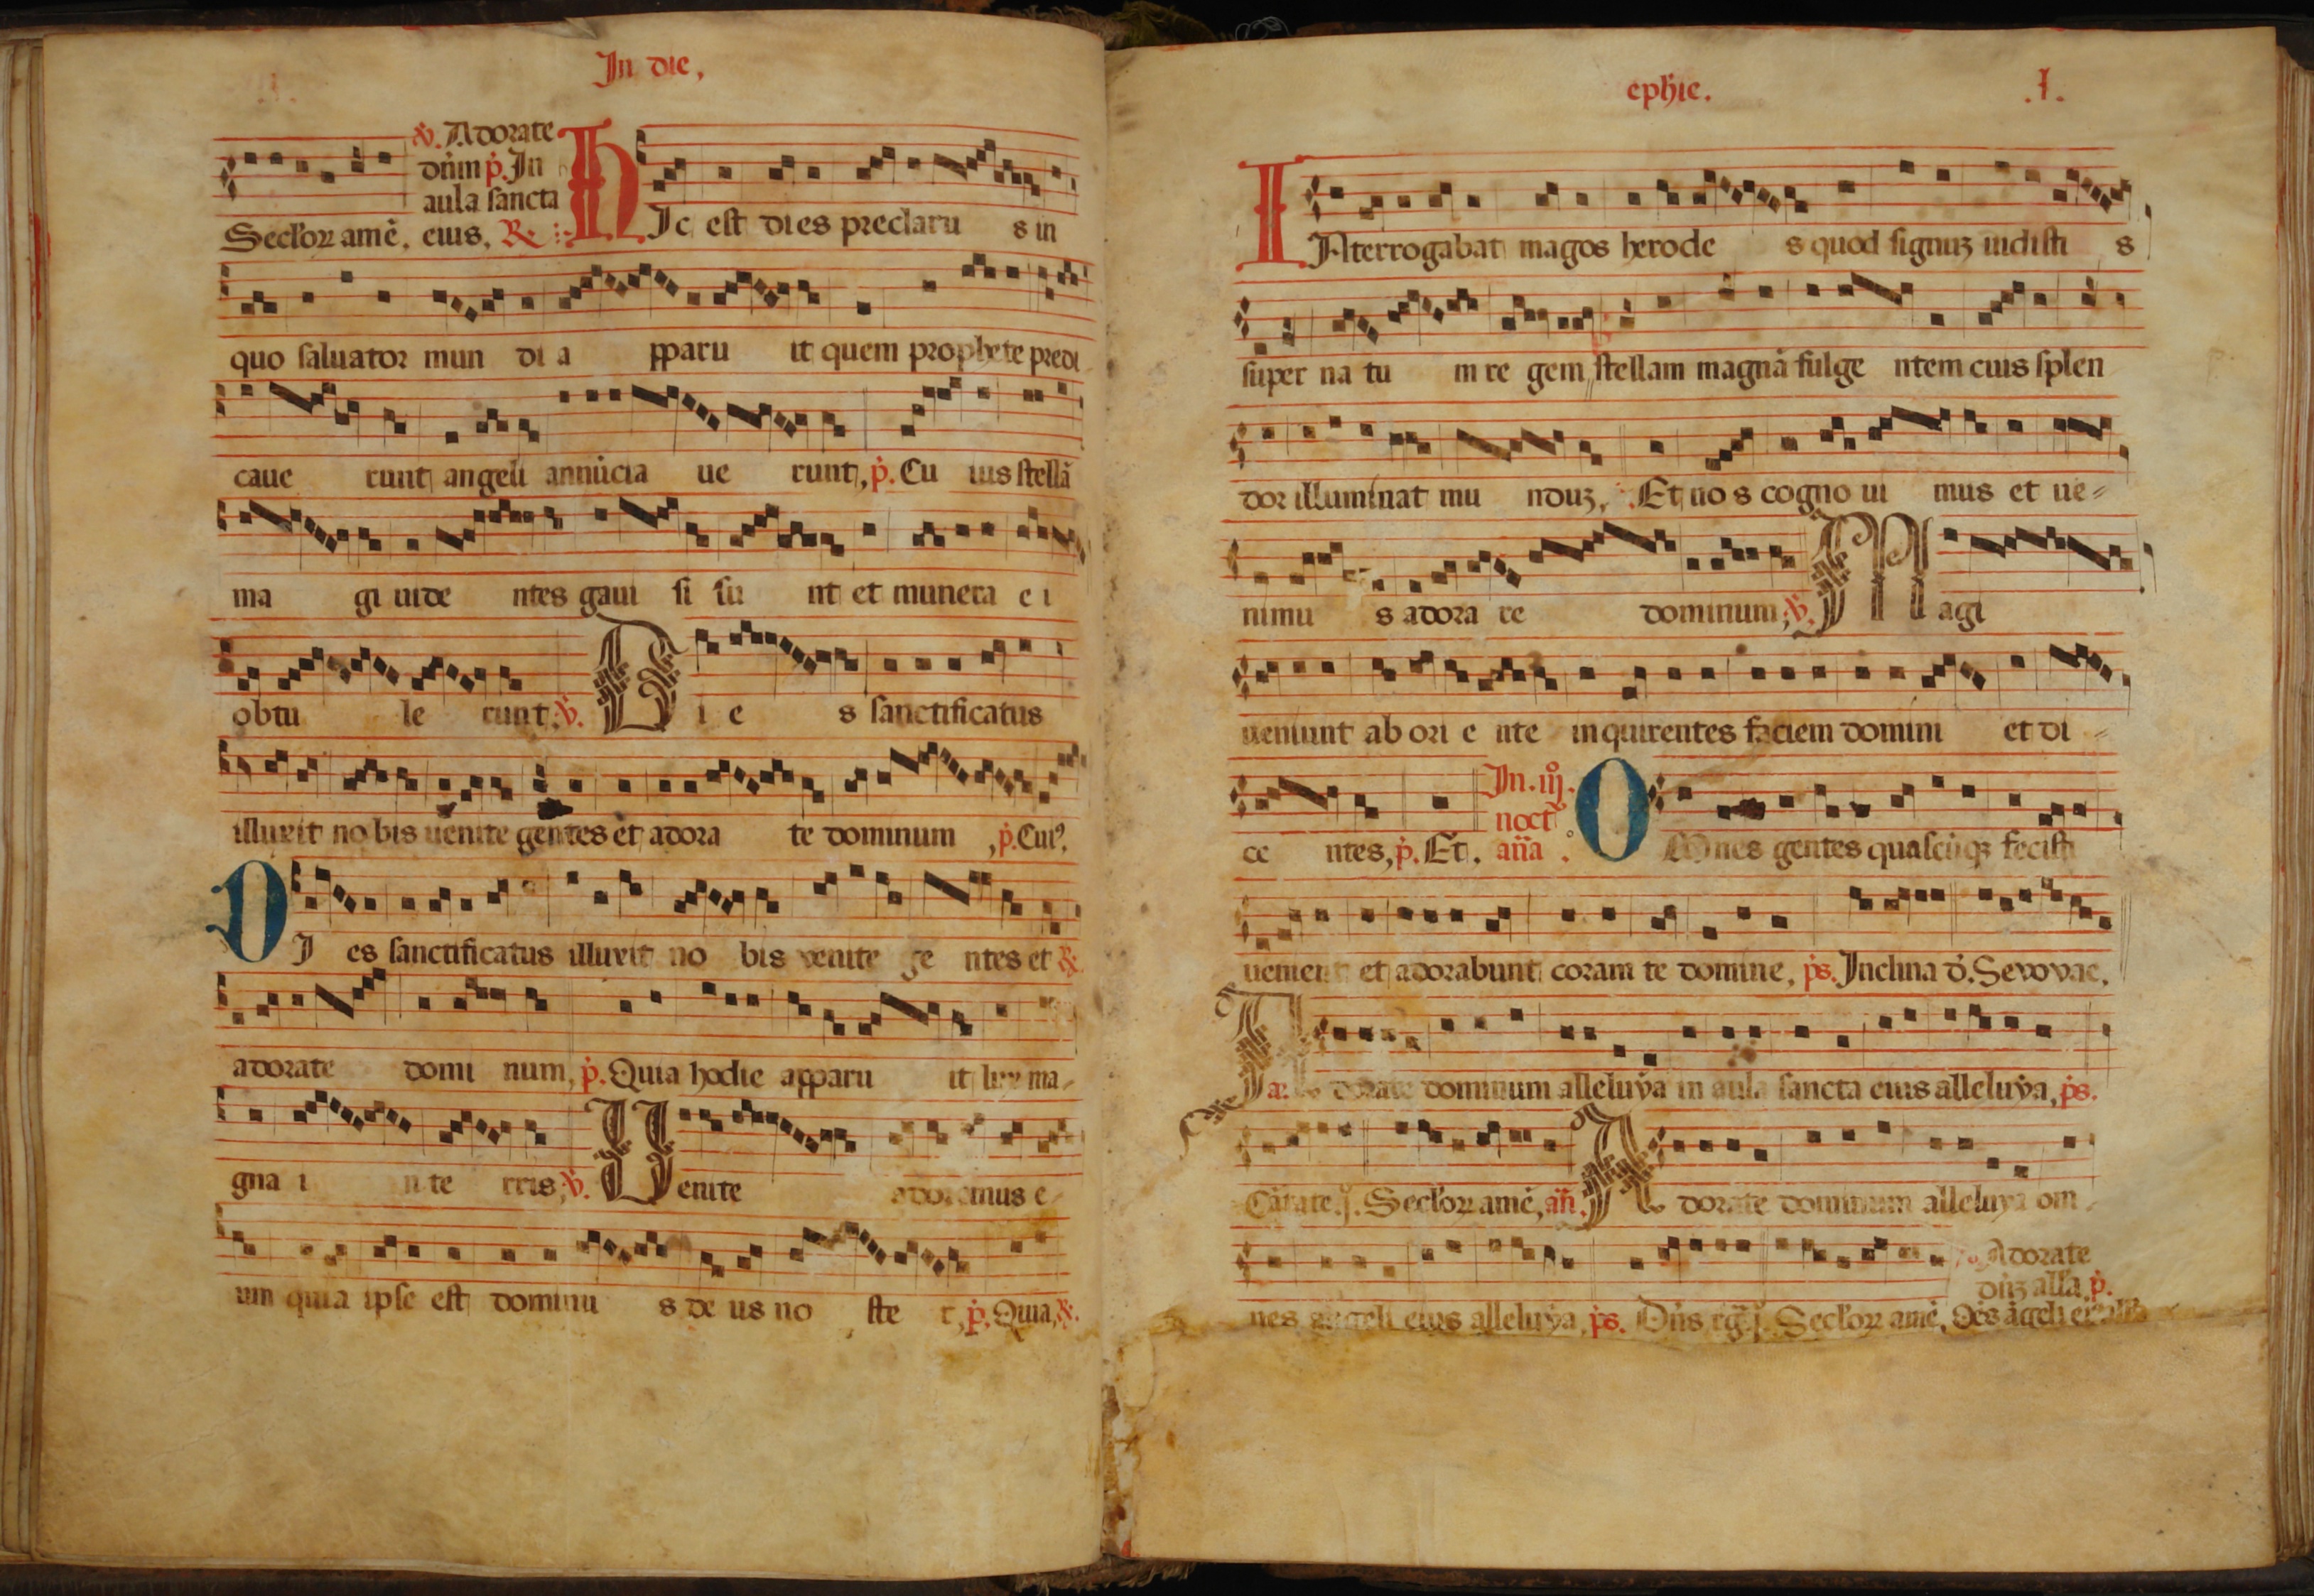 In die,
℣. Adorate
dn̄m p̄. In
aula sancta
Secl'oꝝ amē. eius, ℟ HIc est dies preclaru s in
quo saluator mun di a pparu it quem prophete predi
caue runt angeli annūcia ue runt, p̄. Cu ius stellā
ma gi uide ntes gaui si su nt et munera e i
obtu le runt ℣. Di e s sanctificatus
illuxit no bis uenite gentes et adora te dominum , p̄. Cuiꝰ.
DI es sanctificatus illuxit no bis venite ge ntes et
adorate domi num, p̄. Quia hodie apparu it lux ma
gna i n te rris, ℣. Uenite adoremus e
um quia ipse est dominu s de us no ste r, p̄. Quia,
ephie. .I.
INterrogabat magos herode s quod signuꝫ uidisti s
super na tu m re gem stellam magnā fulge ntem cuius splen
dor illuminat mu nduꝫ, Et no s cogno ui mus et ue=
nimu s adora re dominum, ℣. Magi
ueniunt ab ori e nte inquirentes faciem domini et di =
ce ntes, p̄. Et. In. iij.
noct
an̄a . OMnes gentes quascūqꝫ fecisti
uenient et adorabunt coram te domine, p̄s. Inclina d̄. Sevovae.
a. Adorate dominum alleluya in aula sancta eius alleluya, p̄s.
Cātate. j. Secl'oꝝ amē, an̄ Adorate dominum alleluya om
nes angeli eius alleluya, p̄s. Dn̄s rḡ. j. Secl'oꝝ amē, Adorate
dn̄ꝫ all'a, p̄.
Oēs āgeli eiꝰ all'a